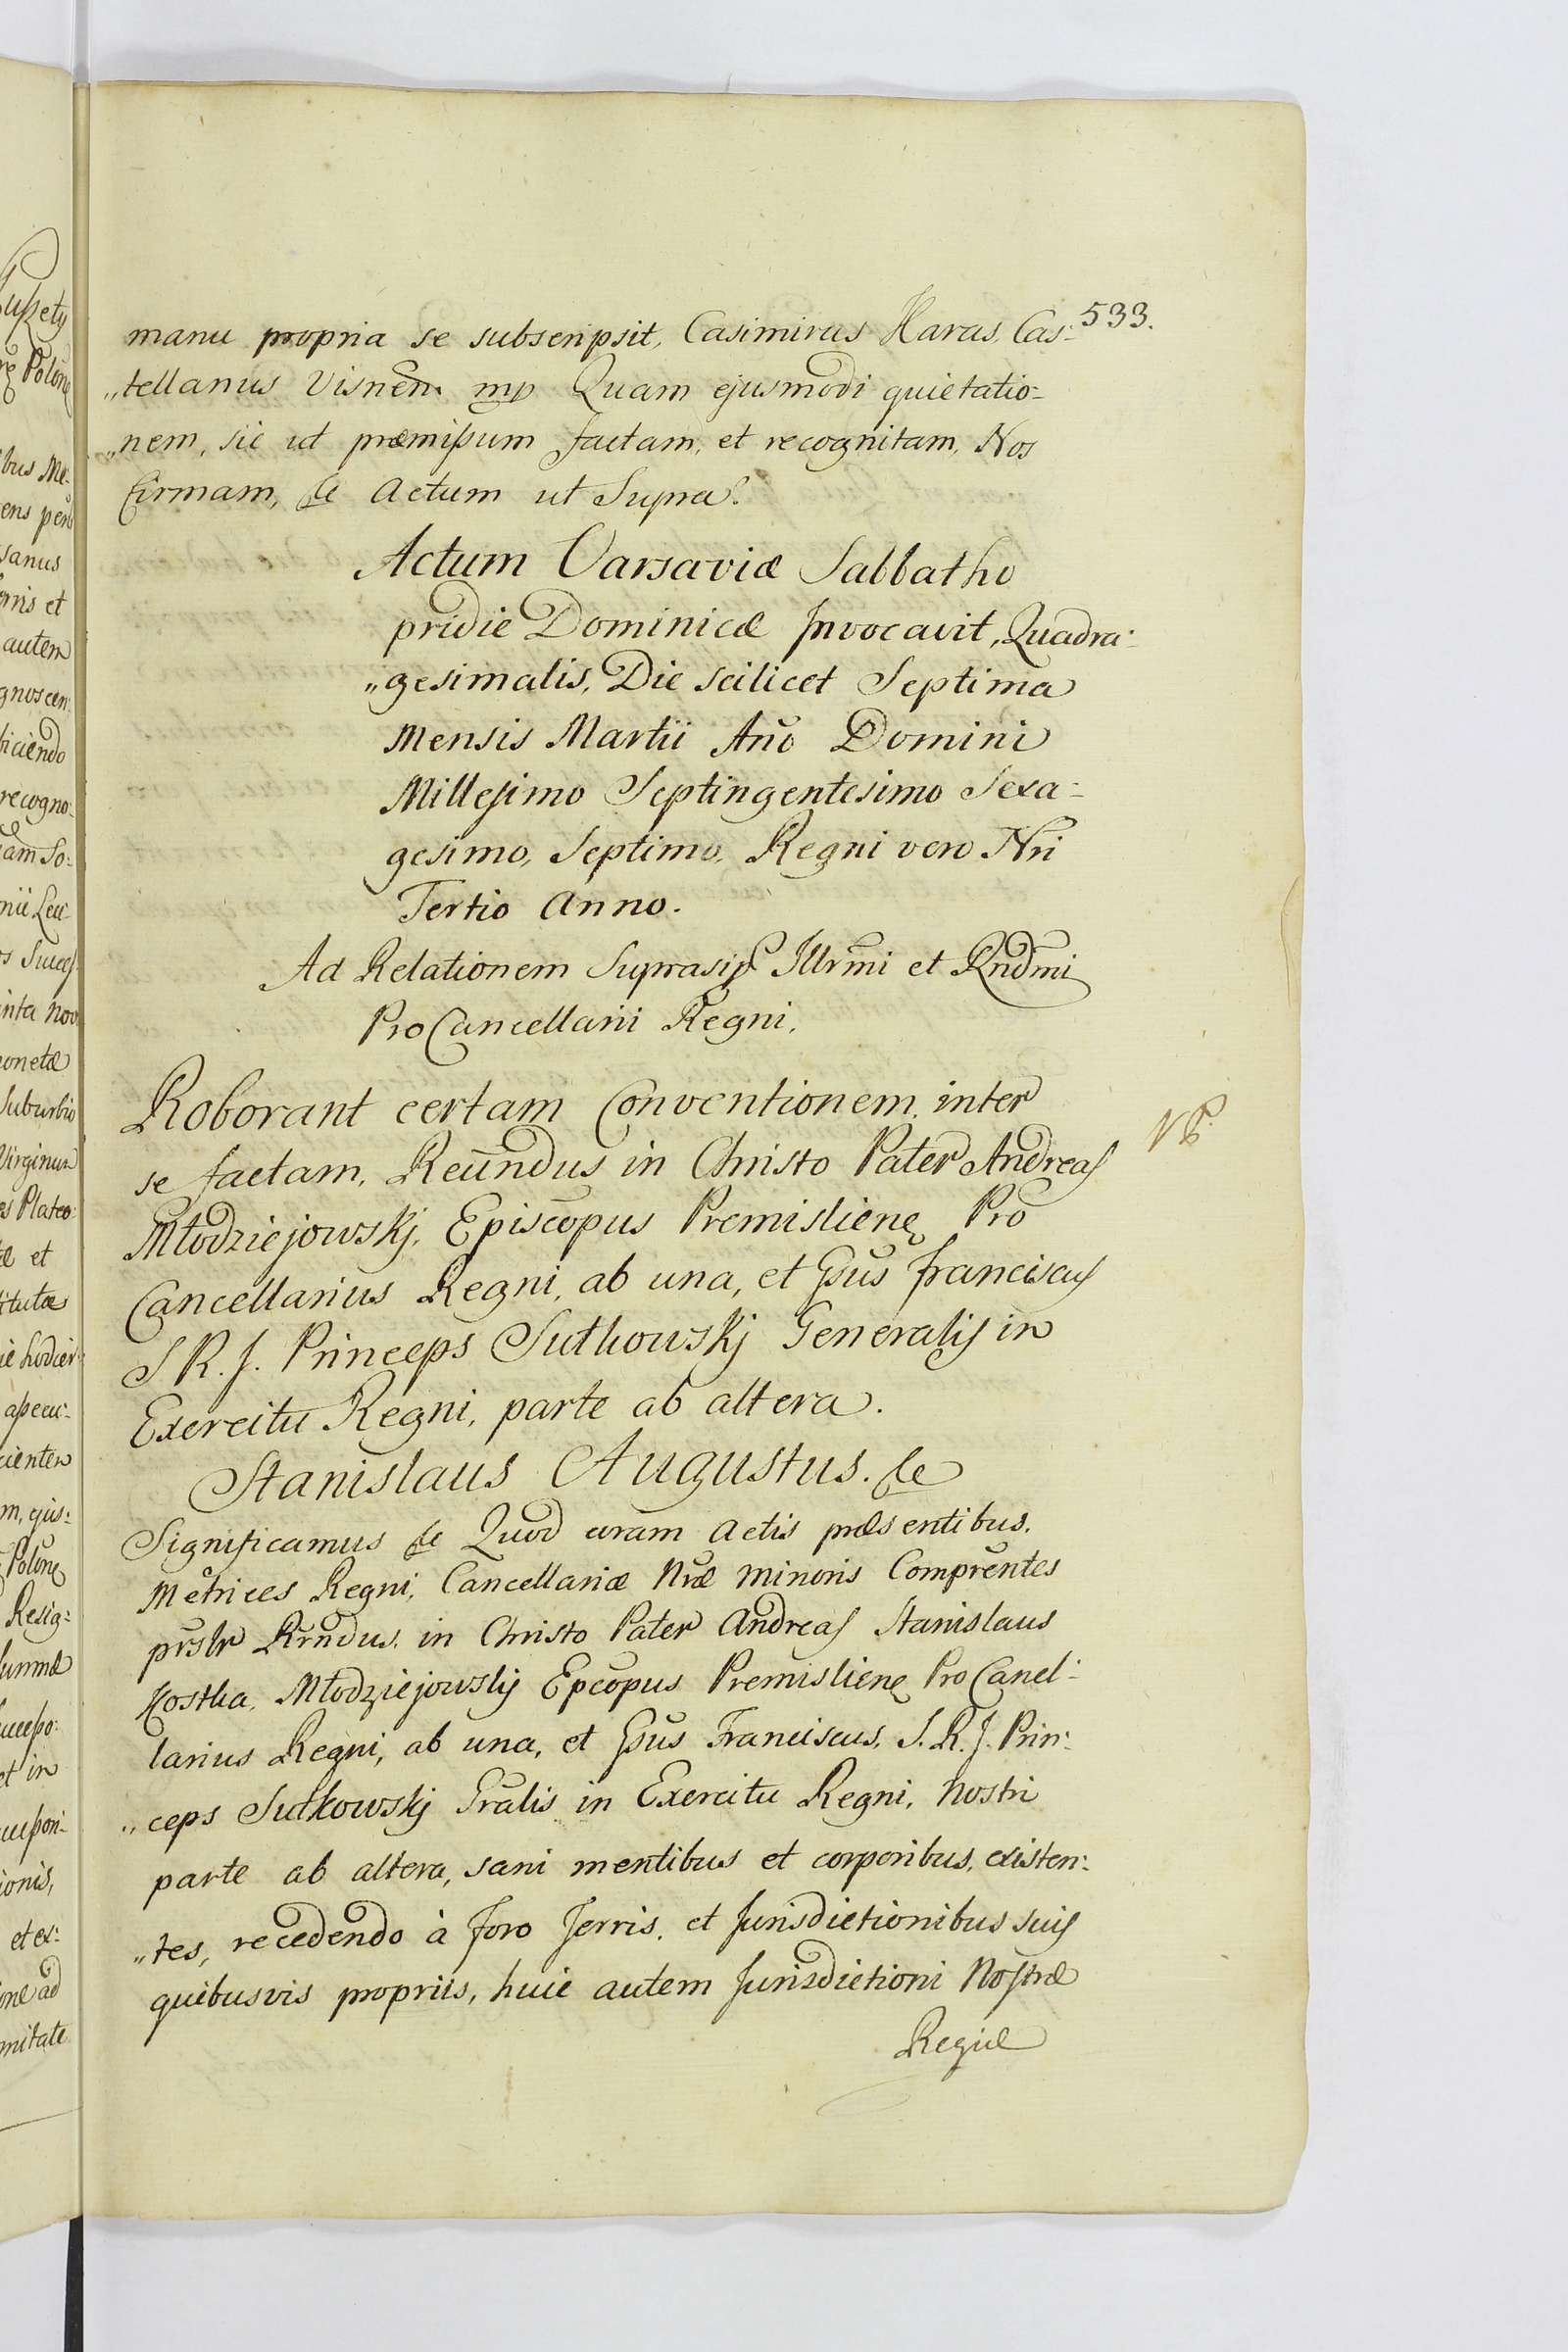 533.
manu propria se subscripsit, Casimirus Karas, Cas-
„tellanus Visnēn mp Quam ejusmodi quietatio-
„nem, sic ut præmißum factam, et recognitam, Nos
Firmam, &c Actum ut Supra.
Actum Varsaviæ Sabbatho
pridie Dominicæ Invocavit, Quadra-
„gesimalis, Die scilicet Septima
Mensis Martii Año Domini
Millesimo Septingentesimo Sexa-
gesimo, Septimo, Regni vero Nri
Tertio Anno.
Ad Relationem Suprasc Illrmi et Rndmi
ProCancellarii Regni.
Roborant certam Conventionem inter
se factam, Reūndus in Christo Pater Andreas
Młodziejowskj, Episcopus Premisliene Pro
Cancellarius Regni, ab una, et Gsus Franciscus
S R. J. Princeps Sułkowskj Generalis in
Exercitu Regni, parte ab altera.
Stanislaus Augustus. &c
Significamus &c Quod coram Actis præsentibus.
Metrices Regni, Cancellariæ Nræ minoris Comprentes
prslr Rrndus. in Christo Pater Andreas Stanislaus
Kostka, Młodziejowskj Epcopus Premisliene Pro Cancl-
larius Regni, ab una, et Gsus Franciscus, S. R. J. Prin-
„ceps Sułkowskj Gralis in Exercitu Regni, nostri
parte ab altera, sani mentibus et corporibus, existen-
„tes, recedendo à Foro Terris, et Jurisdictionibus suis
quibusvis propriis, huic autem Jurisdictioni Nostræ
Regiæ